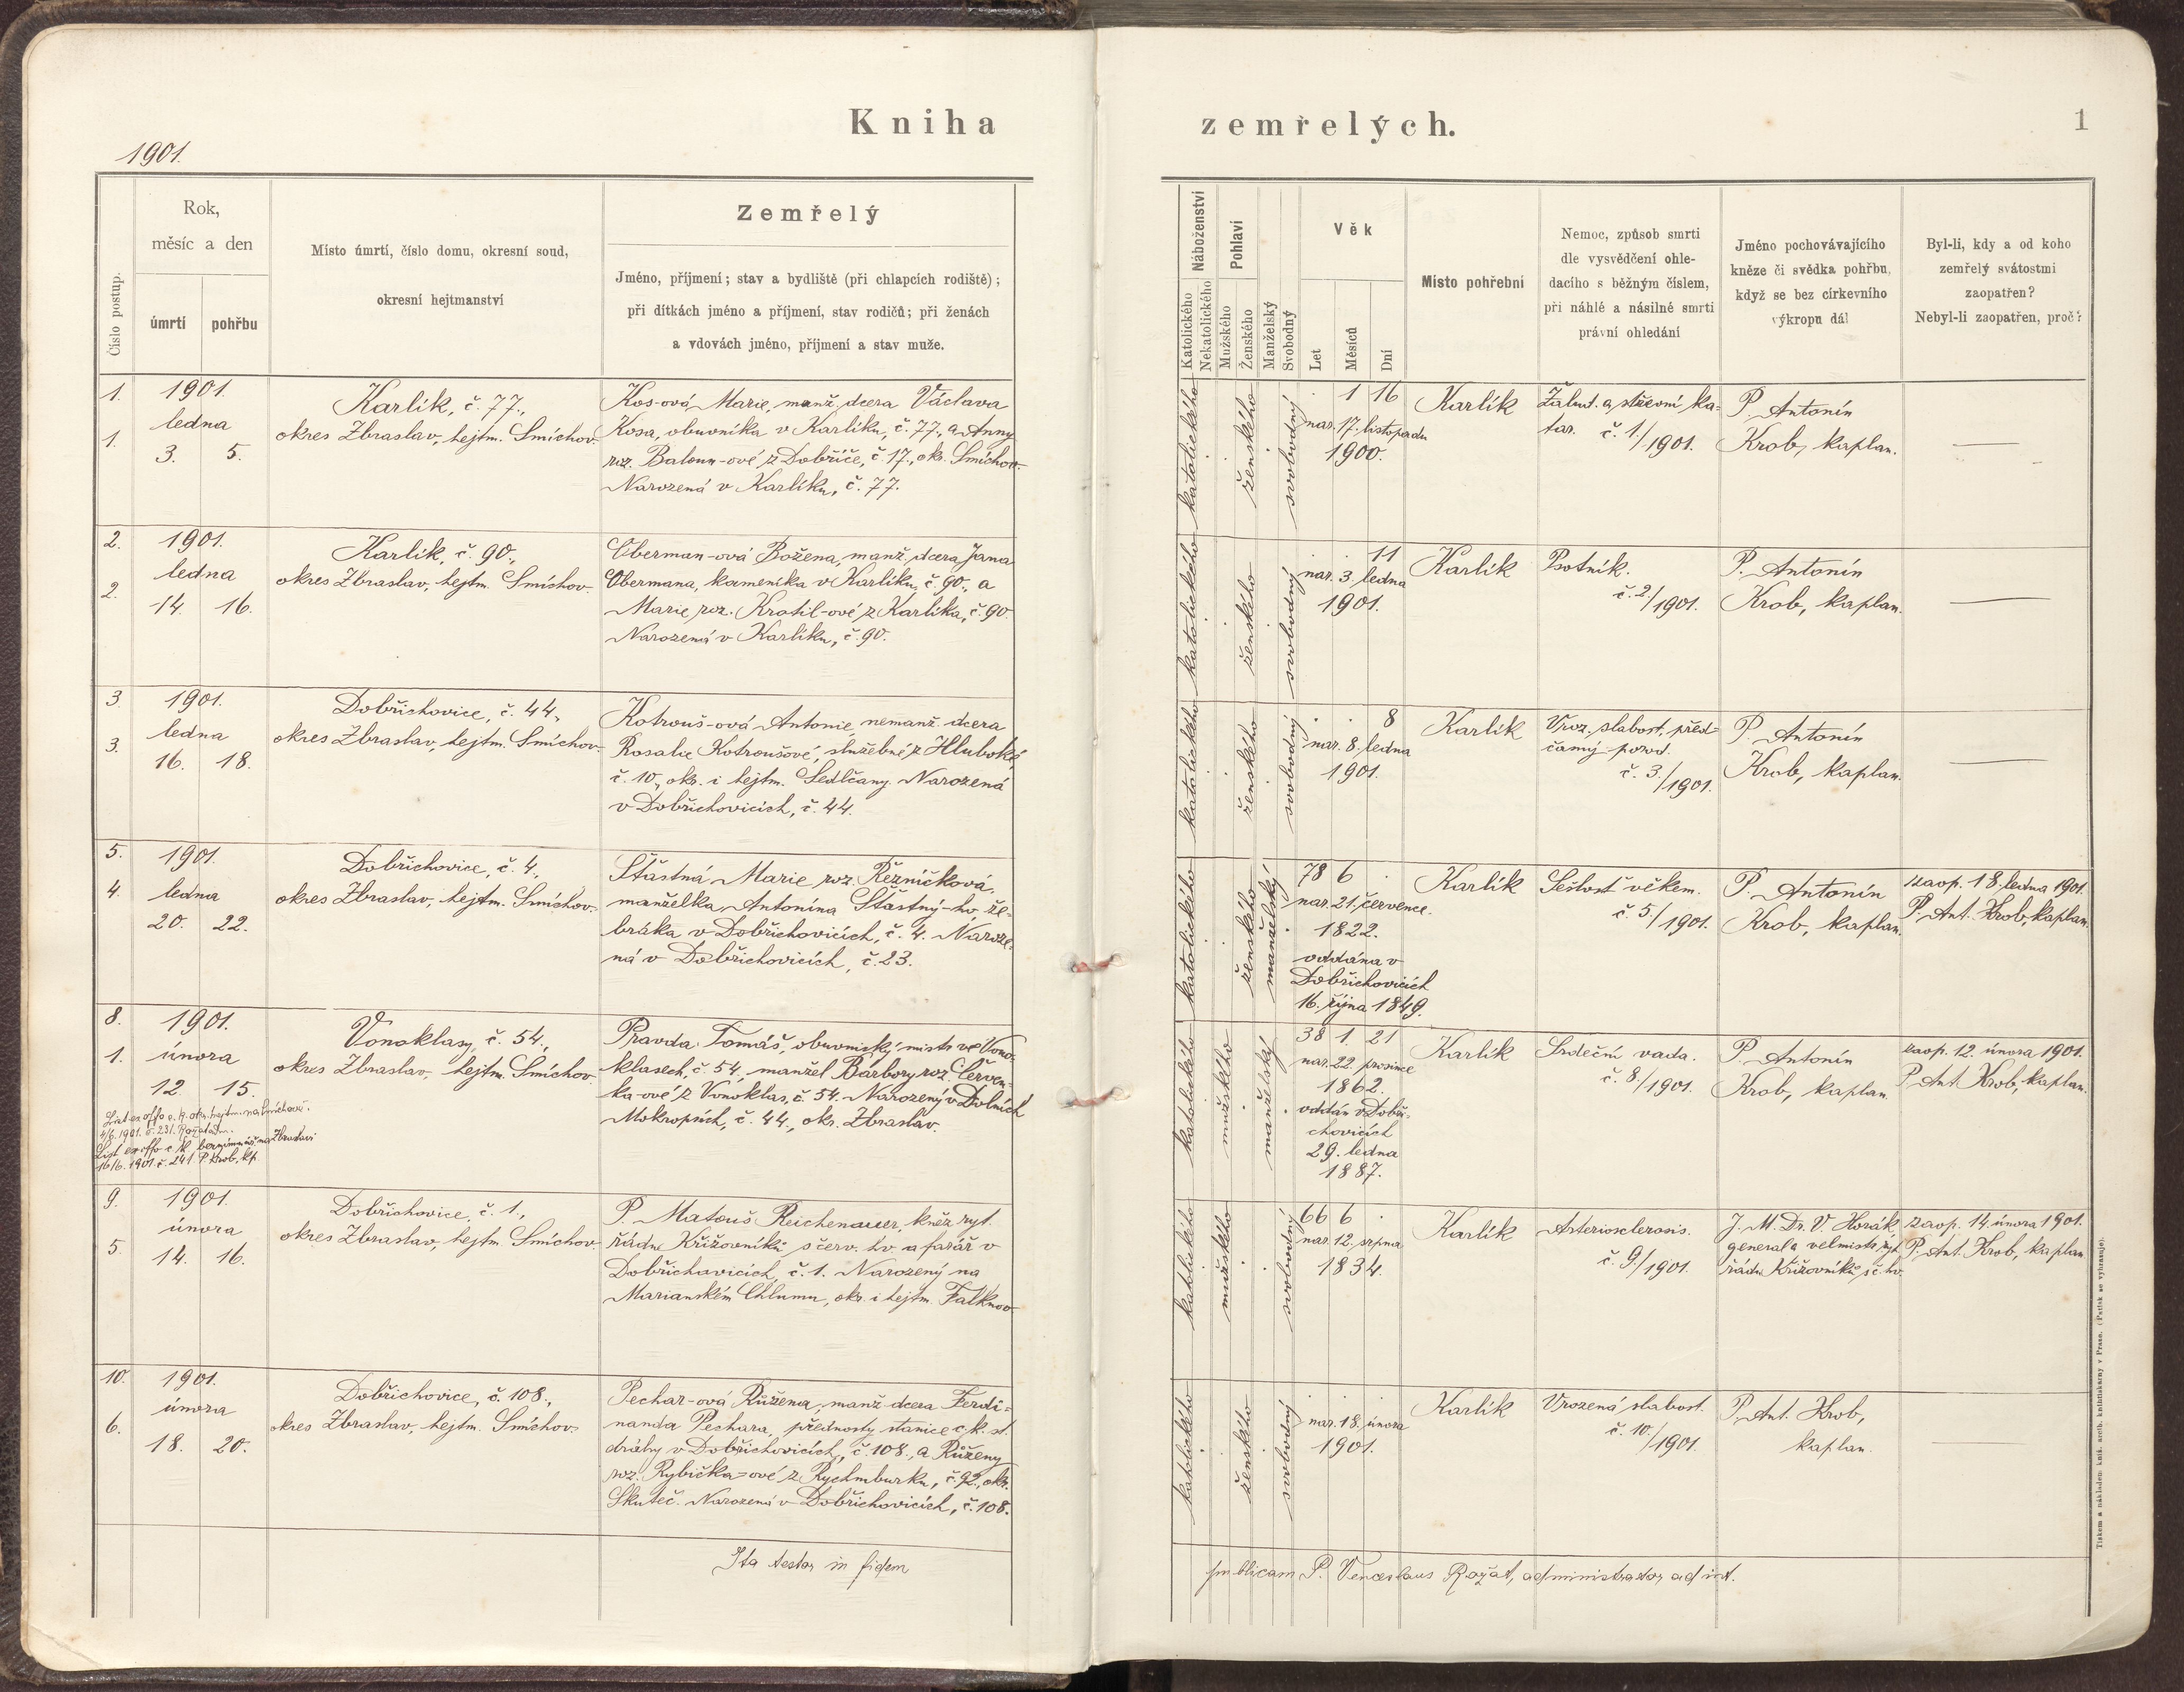 Kniha zemřelých.
1
1901.
Číslo postup.
Rok,
měsíc a den
úmrtí
pohřbu
Místo úmrtí, číslo domu, okresní soud,
okresní hejtmanství
Zemřelý
Jméno, příjmení; stav a bydliště (při chlapcích rodiště);
při dítkách jméno a příjmení, stav rodičů; při ženách
a vdovách jméno, příjmení a stav muže.
Náboženství
Katolického
Nekatolického
Pohlaví
Mužského
Ženského
Manželský
Svobodný
Věk
Let
Měsíců
Dní
Místo pohřební
Nemoc, způsob smrti
dle vysvědčení ohle-
dacího s běžným číslem,
při náhlé a násilné smrti
právní ohledání
Jméno pochovávajícího
kněze či svědka pohřbu,
když se bez církevního
výkropu dál
Byl-li, kdy a od koho
zemřelý svátostmi
zaopatřen?
Nebyl-li zaopatřen, proč?
1.
1.
1901.
ledna
3. 5.
Karlík, č. 77.,
okres Zbraslav, hejtm. Smíchov.
Kos-ová Marie, manž. dcera Václava
Kosa, obuvníka v Karlíku, č. 77., a Anny
roz. Baloun-ové z Dobříče, č. 17., okr. Smíchov.
Narozená v Karlíku, č. 77.
katolického
ženského
svobodný
. 1 16
nar. 17. listopadu
1900.
Karlík
Žalud. a střevní ka-
tar. č. 1./1901.
P. Antonín
Krob, kaplan.
—
2.
2.
1901.
ledna
14. 16.
Karlík, č. 90.,
okres Zbraslav, hejtm. Smíchov.
Oberman-ová Božena, manž. dcera Jana
Obermana, kameníka v Karlíku, č. 90., a
Marie roz. Kratil-ové z Karlíka, č. 90.
Narozená v Karlíku, č. 90.
katolického
ženského
svobodný
. . 11
nar. 3. ledna
1901.
Karlík
Psotník.
č. 2./1901.
P. Antonín
Krob, kaplan.
—
3.
3.
1901.
ledna
16. 18.
Dobřichovice, č. 44.,
okres Zbraslav, hejtm. Smíchov.
Kotrouš-ová Antonie, nemanž. dcera
Rosalie Kotroušové, služebné z Hluboké,
č. 10., okr. i hejtm. Sedlčany. Narozená
v Dobřichovicích, č. 44.
katolického
ženského
svobodný
. . 8
nar. 8. ledna
1901.
Karlík
Vroz. slabost, před-
časný porod.
č. 3./1901.
P. Antonín
Krob, kaplan.
—
5.
4.
1901.
ledna
20. 22.
Dobřichovice, č. 4.,
okres Zbraslav, hejtm. Smíchov.
Šťastná Marie roz. Řezníčková,
manželka Antonína Šťastný-ho, že-
bráka v Dobřichovicích, č. 4. Naroze-
ná v Dobřichovicích, č. 23.
katolického
ženského
manželský
78 6 .
nar. 21. července
1822.
oddána v
Dobřichovicích
16. října 1849.
Karlík
Sešlost věkem.
č. 5./1901.
P. Antonín
Krob, kaplan.
zaop. 18. ledna 1901.
P. Ant. Krob, kaplan.
8.
1.
1901.
února
12. 15.
List ex offo c. k. okr. hejtm. na Smíchově.
4/6. 1901. č. 231. Rozat adm.
List ex offo c. k. bernímu úř. na Zbraslavi
16/6. 1901. č. 241. P. Krob, kp.
Vonoklasy, č. 54.,
okres Zbraslav, hejtm. Smíchov.
Pravda Tomáš, obuvnický mistr ve Vono-
klasech, č. 54., manžel Barbory roz. Červen-
ka-ové z Vonoklas, č. 54. Narozený v Dolních
Mokropsích, č. 44., okr. Zbraslav.
katolického
mužského
manželský
38 1. 21
nar. 22. prosince
1862.
oddán v Dobři-
chovicích
29. ledna
1887.
Karlík
Srdeční vada.
č. 8./1901.
P. Antonín
Krob, kaplan.
zaop. 12. února 1901.
P. Ant. Krob, kaplan.
9.
5.
1901.
února
14. 16.
Dobřichovice, č. 1.,
okres Zbraslav, hejtm. Smíchov.
P. Matouš Reichenauer, kněz ryt.
řádu Křižovníků s červ. hv. a farář v
Dobřichovicích, č. 1. Narozený na
Marianském Chlumu, okr. i hejtm. Falknov
katolického
mužského
svobodný
66 6 .
nar. 12. srpna
1834.
Karlík
Arteriosclerosis.
č. 9./1901.
J. M. Dr. V. Horák,
general a velmistr ryt.
řádu Křižovníků s č. hv.
zaop. 14. února 1901.
P. Ant. Krob, kaplan
10.
6.
1901.
února
18. 20.
Dobřichovice, č. 108.,
okres Zbraslav, hejtm. Smíchov.
Pechar-ová Růžena, manž. dcera Ferdi-
nanda Pechara, přednosty stanice c. k. st.
dráhy v Dobřichovicích, č. 108., a Růženy
roz. Rybička-ové z Rychmburku, č. 92., okr.
Skuteč. Narozená v Dobřichovicích, č. 108.
katolického
ženského
svobodný
. . .
nar. 18. února
1901.
Karlík
Vrozená slabost.
č. 10./1901.
P. Ant. Krob,
kaplan.
—
Ita testor in fidem publicam P. Venceslaus Rozat, administrator ad int.
Tiskem a nákladem kníž. arcib. knihtiskárny v Praze. (Patisk se vyhrazuje).